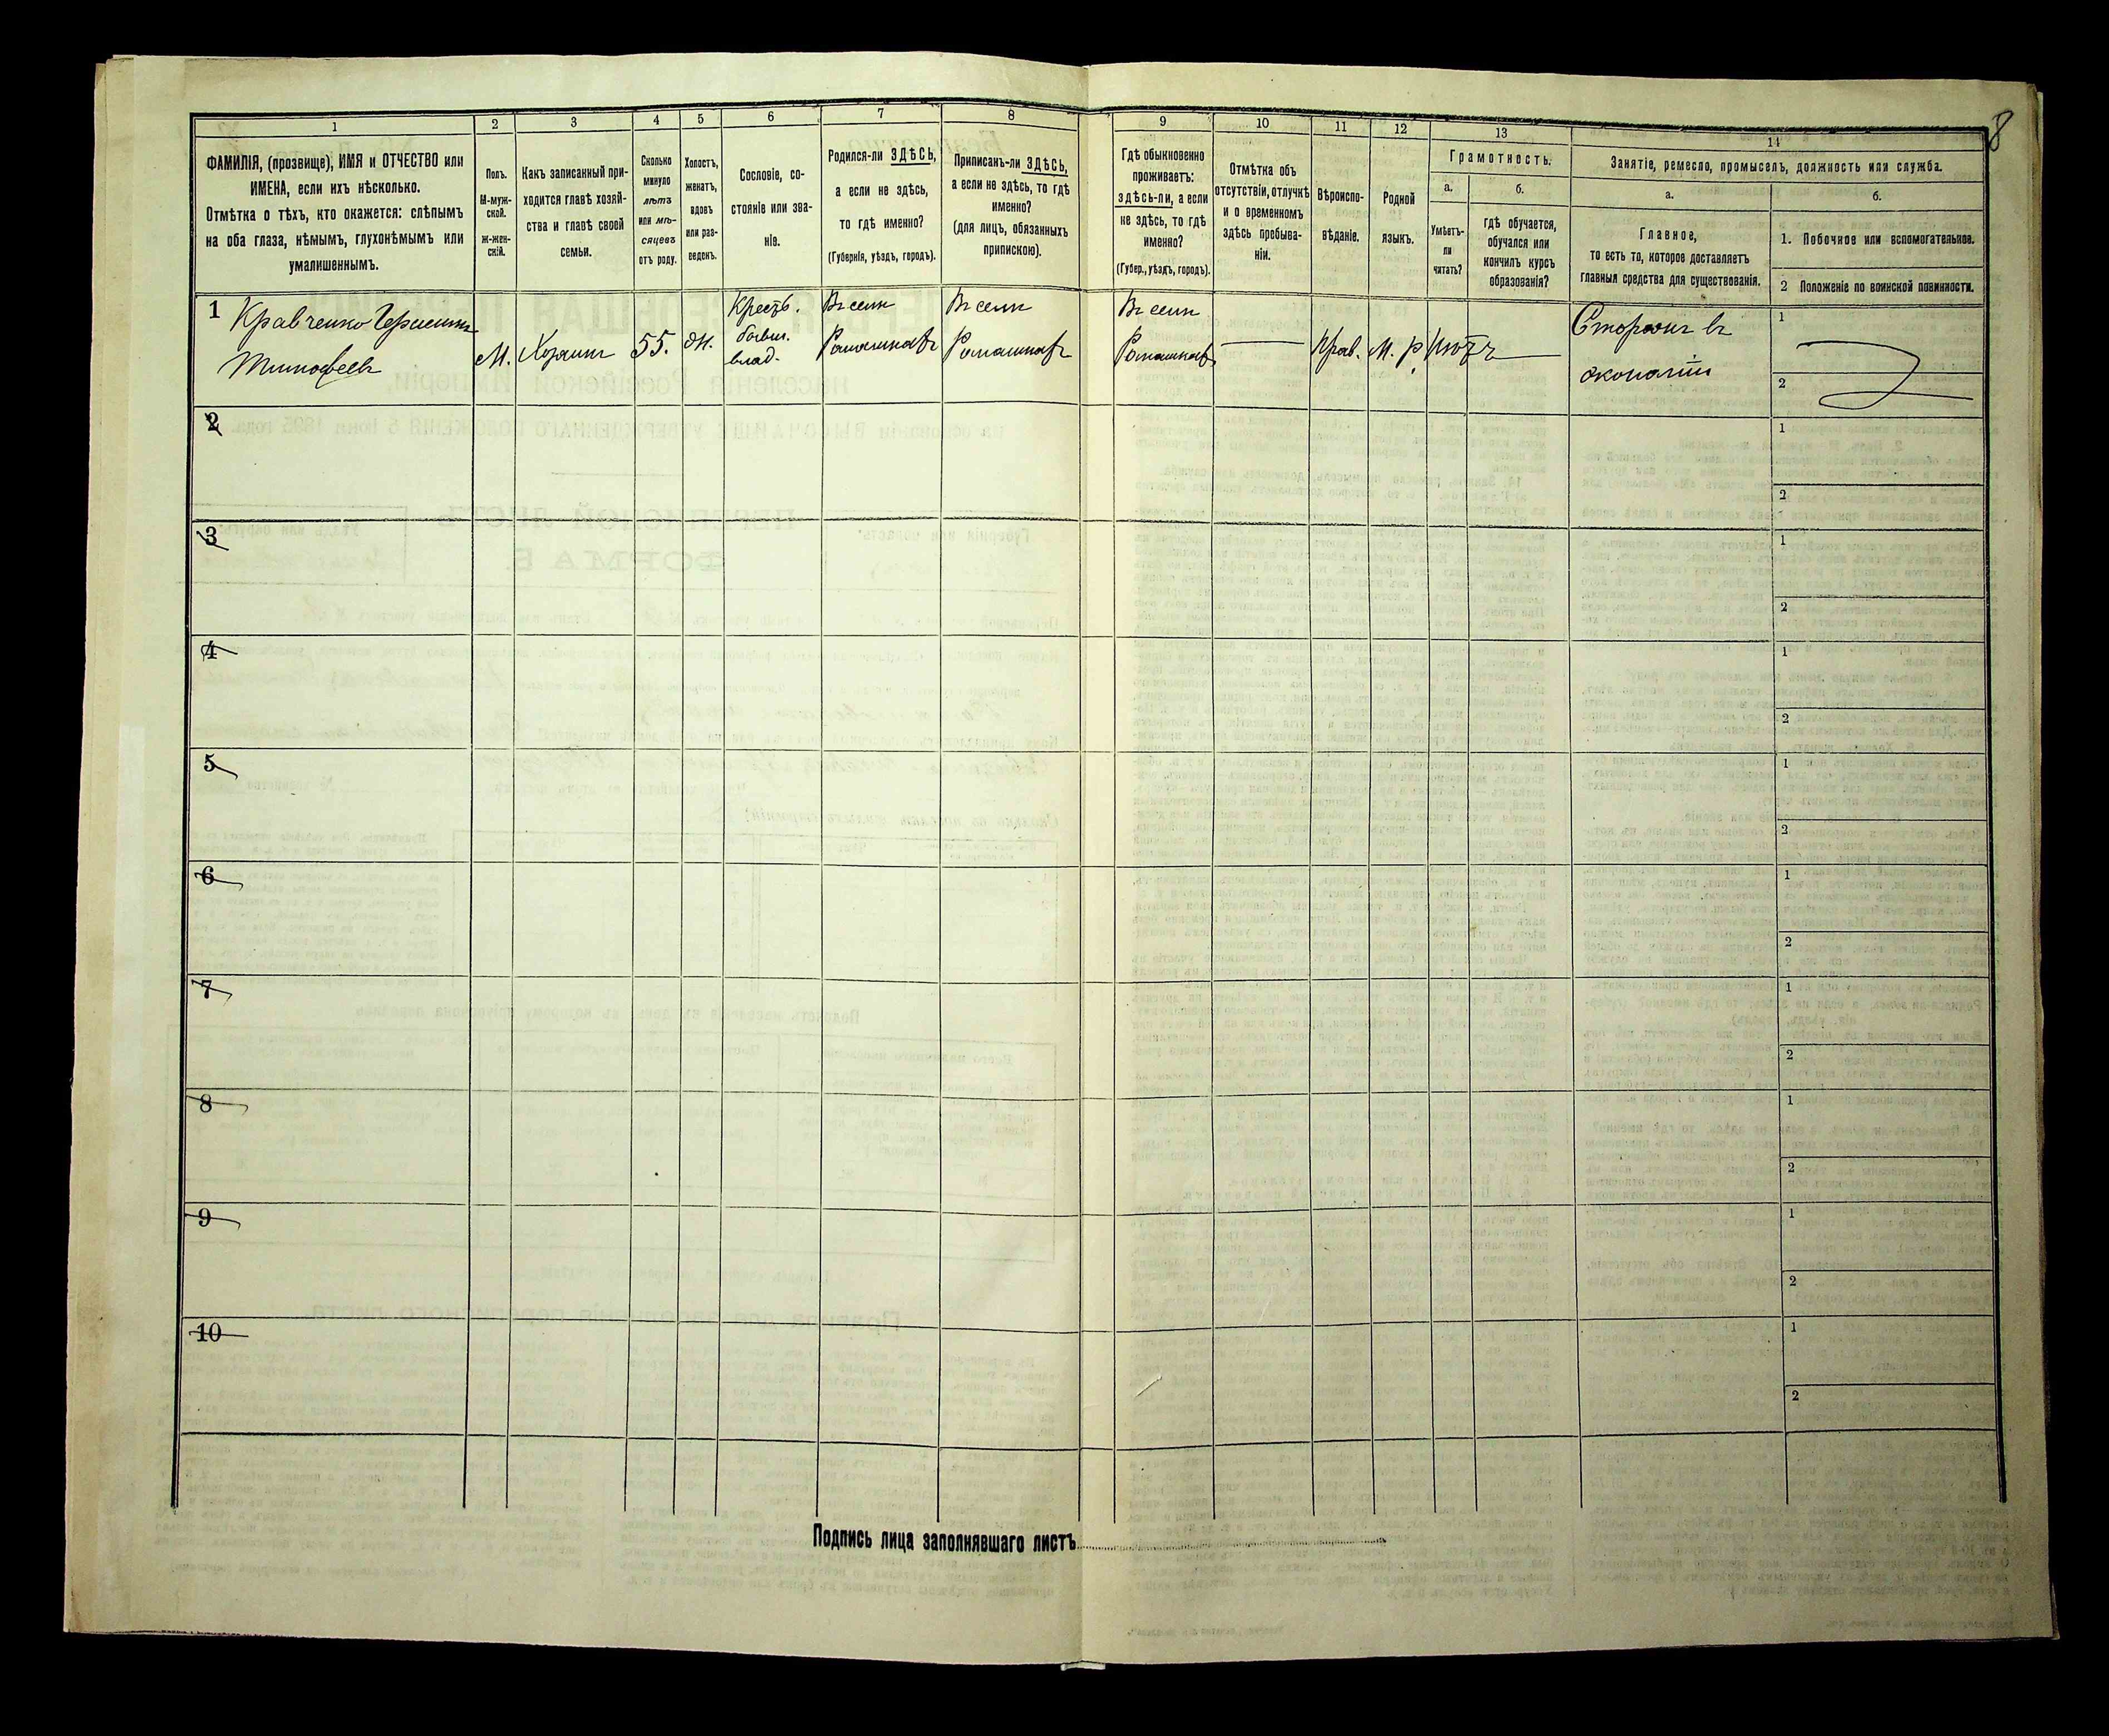 8
1
2
3
4
5
6
7
8
9
10
11
12
13
14
ФАМИЛІЯ, (прозвище), ИМЯ и ОТЧЕСТВО или
ИМЕНА, если ихъ нѣсколько.
Отмѣтка о тѣхъ, кто окажется: слѣпымъ
на оба глаза, нѣмымъ, глухонѣмымъ или
умалишеннымъ.
Полъ.
М-муж-
ской.
ж-жен-
скій.
Какъ записанный при-
ходится главѣ хозяй-
ства и главѣ своей
семьи.
Сколько
минуло
лѣтъ
или мѣ-
сяцевъ
отъ роду.
Холостъ,
женатъ,
вдовъ
или раз-
веденъ.
Сословіе, со-
стояніе или зва-
ніе.
Родился-ли ЗДѢСЬ,
а если не здѣсь,
то гдѣ именно?
(Губернія, уѣздъ, городъ).
Приписанъ-ли ЗДѢСЬ,
а если не здѣсь, то гдѣ
именно?
(для лицъ, обязанныхъ
припискою).
Гдѣ обыкновенно
проживаетъ:
здѣсь-ли, а если
не здѣсь, то гдѣ
именно?
(Губер., уѣздъ, городъ).
Отмѣтка объ
отсутствіи, отлучкѣ
и о временномъ
здѣсь пребыва-
ніи.
Вѣроиспо-
вѣданіе.
Родной
языкъ.
Грамотность.
а.
Умѣетъ-
ли
читать?
б.
гдѣ обучается,
обучался или
кончилъ курсъ
образованія?
Занятіе, ремесло, промыселъ, должность или служба.
а.
Главное,
то есть то, которое доставляетъ
главныя средства для существованія.
б.
1. Побочное или вспомогательное.
2 Положеніе по воинской повинности.
1
Кравченко Герасимъ
Тимофеевъ
М.
Хозяинъ
55.
Ж.
Крестъ.
бывш.
влад.
Въ селѣ
Ромашкахъ
Въ селѣ
Ромашкахъ
Въ селѣ
Ромашкахъ
Прав.
М. р.
Нѣтъ
Сторожъ въ
экономіи
1
2
2
1
2
3
1
2
4
1
2
5
1
2
6
1
2
7
1
2
8
1
2
9
1
2
10
1
2
Подпись лица заполнявшаго листъ